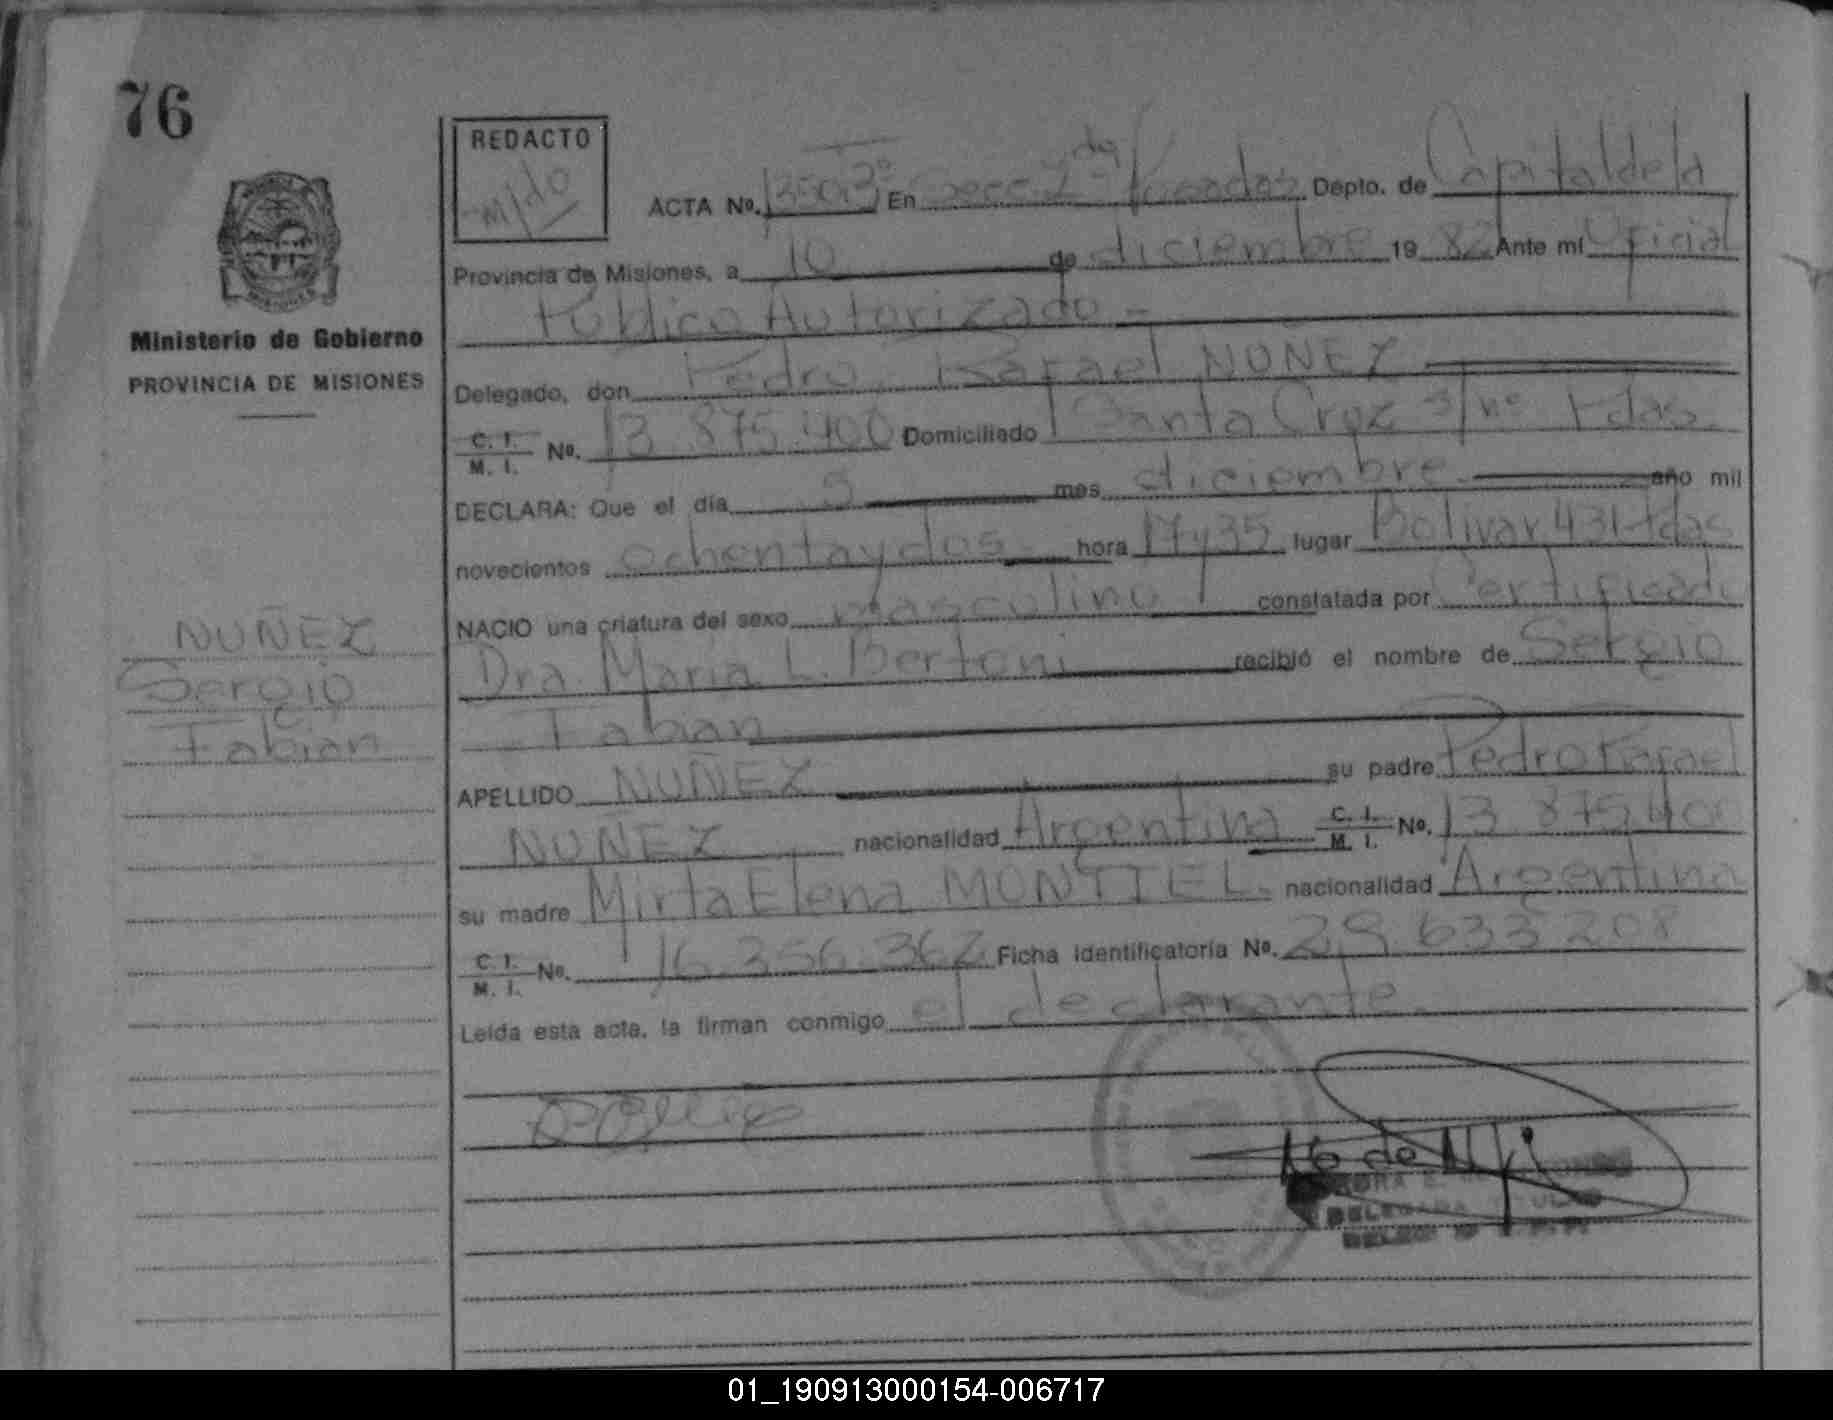 76
REDACTO
ACTA No. En Secc. 2da Posadas Depto. de Capital de la
Provincia de Misiones, a 10 de diciembre 19 82 Ante mí Oficial
Público Autorizado -
Ministerio de Gobierno
PROVINCIA DE MISIONES
Delegado, don Pedro Rafael NUÑEZ
C. I. M. I. No. 13.875.400 Domiciliado Santa Cruz s/nº Pdas.
DECLARA: Que el día 5 mes diciembre año mil
novecientos ochentaydos hora 17y35 lugar Bolivar 431-Pdas
NACIO una criatura del sexo masculino constatada por Certificado
Dra. Maria L. Bertoni recibió el nombre de Sergio
Fabian
NUÑEZ
Sergio
Fabian
APELLIDO NUÑEZ su padre Pedro Rafael
NUÑEZ nacionalidad Argentina C. I. M. I. No. 13.875.400
su madre Mirta Elena MONTIEL. nacionalidad Argentina
C. I. M. I. No. 16.356.362 Ficha Identificatoria No. 29 633 208
Leída esta acta, la firman conmigo el declarante.
DELEGADA
01_190913000154-006717